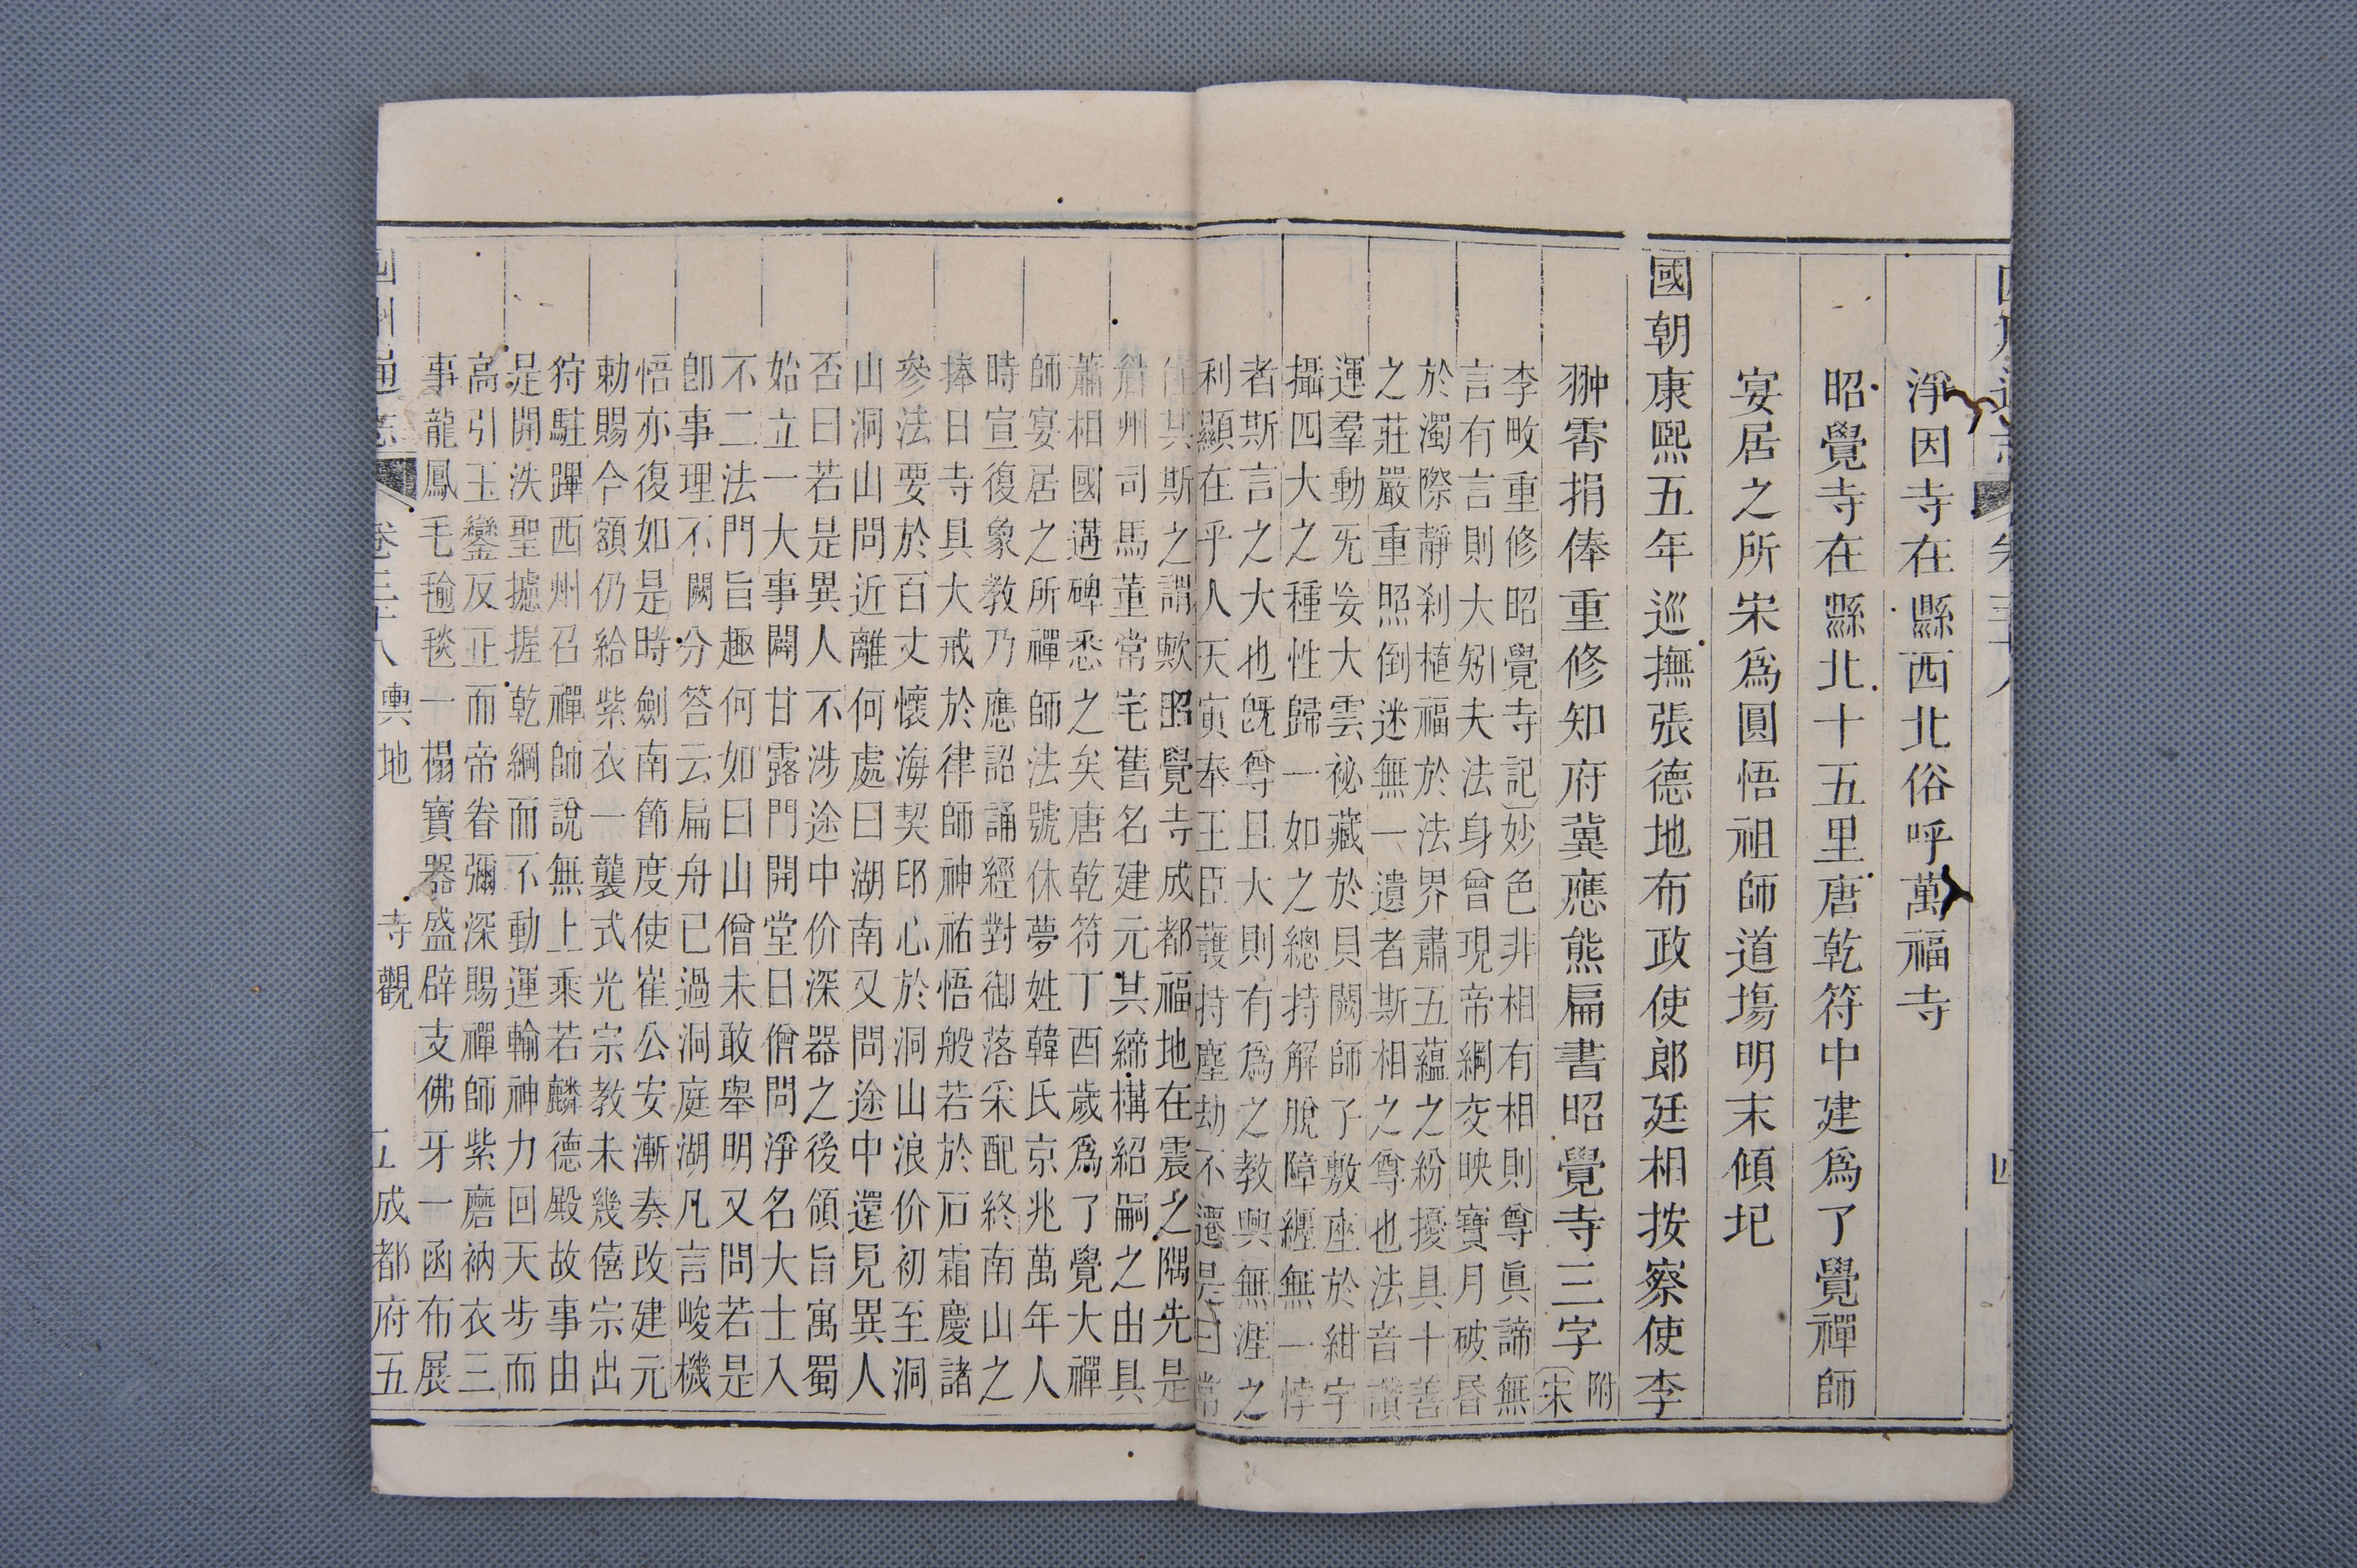 淨因寺在縣西北俗呼萬福寺
昭覺寺在縣北十五里唐乾符中建爲了覺禪師
宴居之所宋爲圓悟祖師道塲明末傾圮
國朝康熙五年巡撫張德地布政使郎廷相按察使李
翀霄捐俸重修知府冀應熊扁書昭覺寺三字附宋
李畋重修昭覺寺記妙色非相有相則尊眞諦無
言有言則大矧夫法身曾現帝綱交映寶月破昏
於濁際靜刹植福於法界肅五蘊之紛擾具十善
之莊嚴重照倒迷無一遺者斯相之尊也法音讚
運羣動旡妄大雲祕藏於貝闕師子敷座於紺宇
攝四大之種性歸一如之總持解脫障纏無一悖
者斯言之大也旣尊且大則有爲之教興無涯之
利顯在乎人天寅奉王臣護持塵劫不遷是曰常
其斯之謂歟昭覺寺成都福地在震之隅先是
州司馬董常宅舊名建元其締構紹嗣之由具
蕭相國遘碑悉之矣唐乾符丁酉歲爲了覺大禪
師宴居之所禪師法號休夢姓韓氏京兆萬年人
時宣復象教乃應詔誦經對御落采配終南山之
捧日寺具大戒於律師神祐悟般若於石霜慶諸
參法要於百丈懷海契印心於洞山浪价初至洞
山洞山問近離何處曰湖南又問途中還見異人
否曰若是異人不涉途中价深器之後領旨寓蜀
始立一大事闢甘露門開堂日僧問淨名大士入
不二法門旨趣何如曰山僧未敢舉明又問若是
卽事理不闕分答云扁舟已過洞庭湖凡言峻機
悟亦復如是時劍南節度使崔公安漸奏改建元
勅賜今額仍給紫衣一襲式光宗教未幾僖宗出
狩駐蹕西州召禪師說無上乘若麟德殿故事由
是開泆聖攄握乾綱而不動運輸神力回天步而
高引玉鑾反正而帝眷彌深賜禪師紫磨衲衣三
事龍鳳毛毺毯一榻寶器盛辟支佛牙一函布展
四川通志 卷三十八 輿地 寺觀 五 成都府五